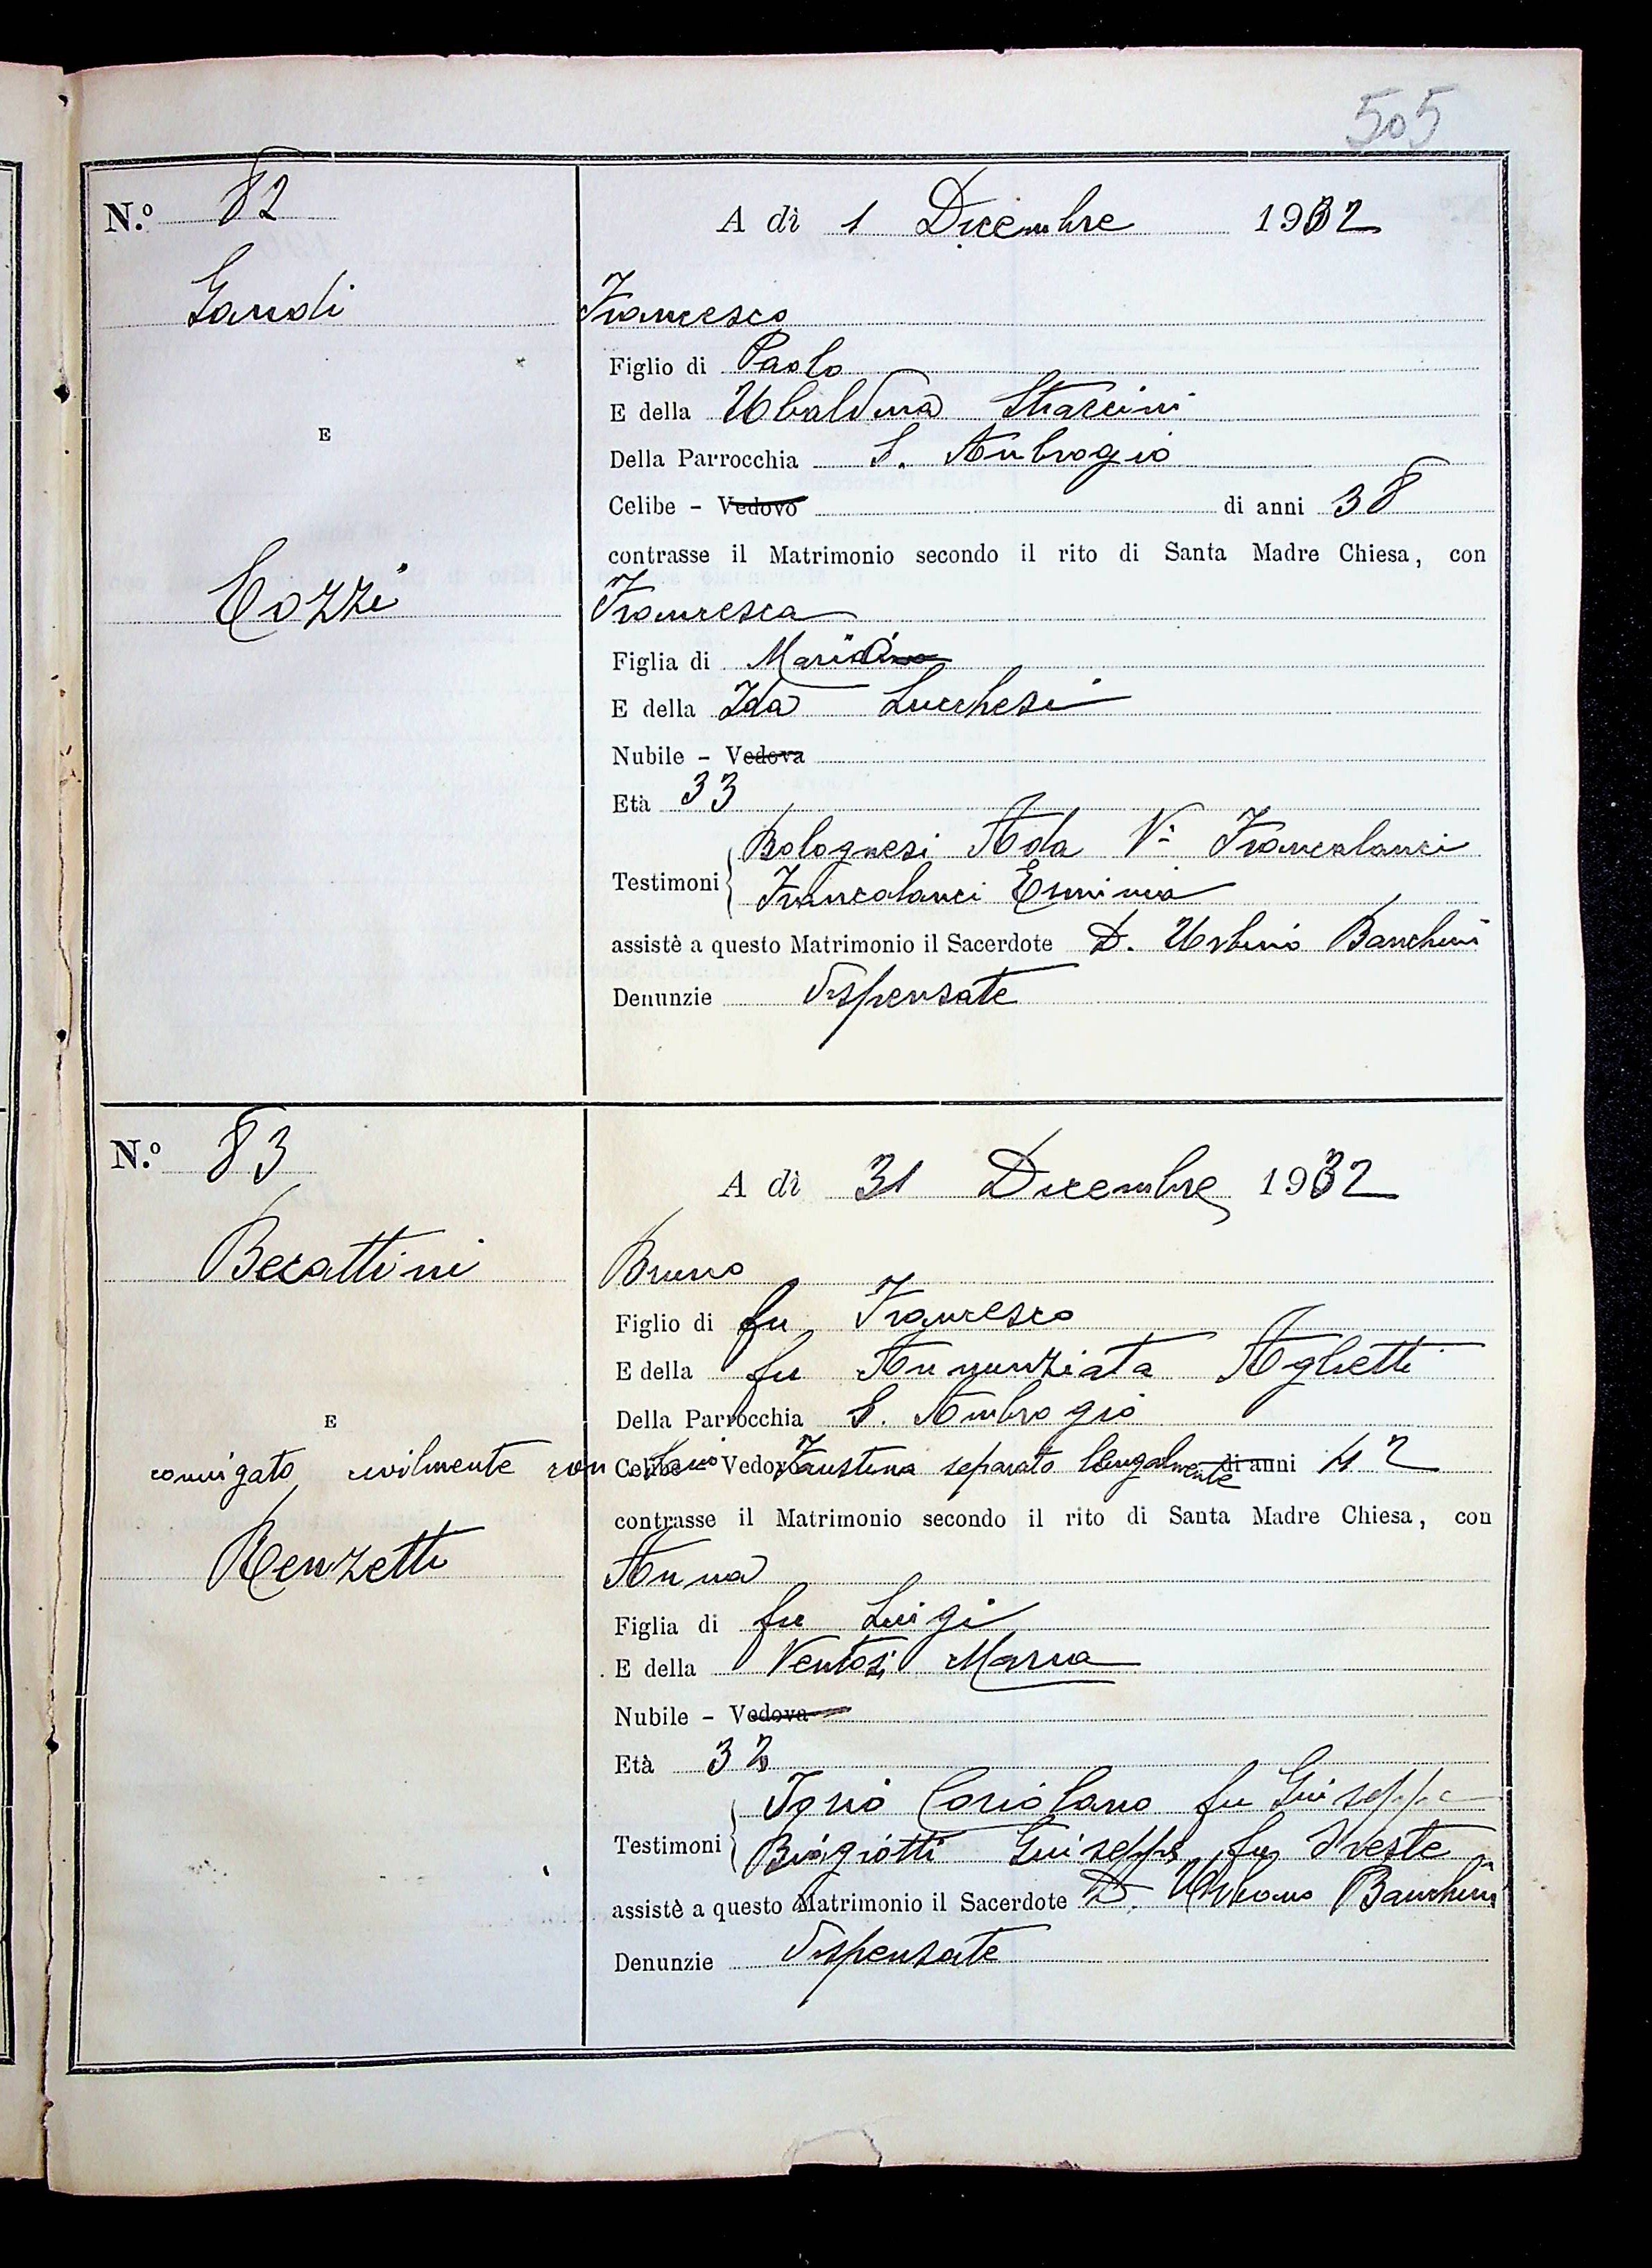 505
N.º 82
A dì 1 Dicembre 1932
Gandi
Francesco
Figlio di Paolo
E della Ubaldina
Della Parrocchia S. Ambrogio
E
Celibe - Vedovo di anni 38
contrasse il Matrimonio secondo il rito di Santa Madre Chiesa, con
Cozzi
Francesca
Figlia di
E della Ida Lucchesi
Nubile - Vedova
Età 33
Bolognesi Ada Vª Francalanci
Testimoni
Francalanci Erminia
assistè a questo Matrimonio il Sacerdote D. Urbano Banchini
Denunzie dispensate
N.º 83
A dì 31 Dicembre 1932
Becattini
Bruno
Figlio di fu Francesco
E della fu Annunziata Aglietti
Della Parrocchia S. Ambrogio
E
coniugato civilmente con Celibe Vedovo Faustina separato lengalmente di anni 42
contrasse il Matrimonio secondo il rito di Santa Madre Chiesa, con
Renzetti
Anna
Figlia di fu Luigi
E della
Nubile - Vedova
Età 32
Coriolano fu Giuseppe
Testimoni
Biagiotti Giuseppe fu Oreste
assistè a questo Matrimonio il Sacerdote D. Urbano Banchini
Denunzie dispensate